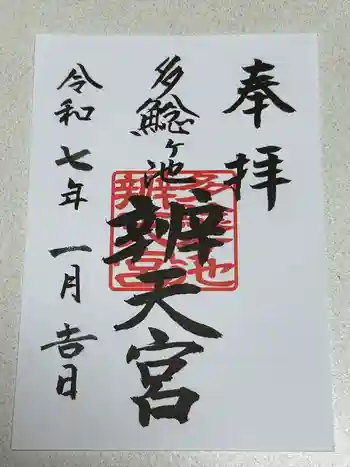 奉拝
多鯰ヶ池
辨天宮
令和七年一月吉日